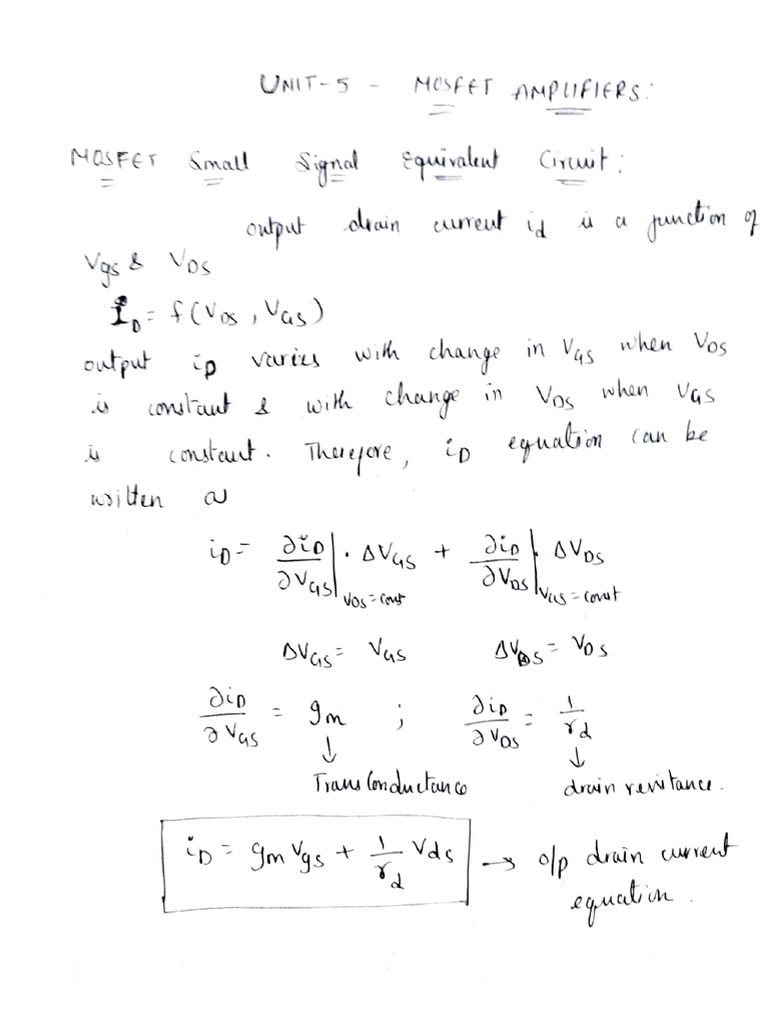 UNIT-5 - MOSFET AMPLIFIERS:
MOSFET Small Signal Equivalent Circuit:
output drain current id is a function of
Vgs & VDS
ID = f(VDS, VGS)
output iD varies with change in VGS when VDS
is constant & with change in VDS when VGS
is constant. Therefore, iD equation can be
written as
iD = ∂iD/∂VGS|VDS = const . ΔVGS + ∂iD/∂VDS|VGS = const . ΔVDS
ΔVGS = VGS ΔVDS = VDS
∂iD/∂VGS = gm ; ∂iD/∂VDS = 1/rd
↓ ↓
TransConductance drain resistance.
iD = gm Vgs + 1/rd Vds → o/p drain current
equation.